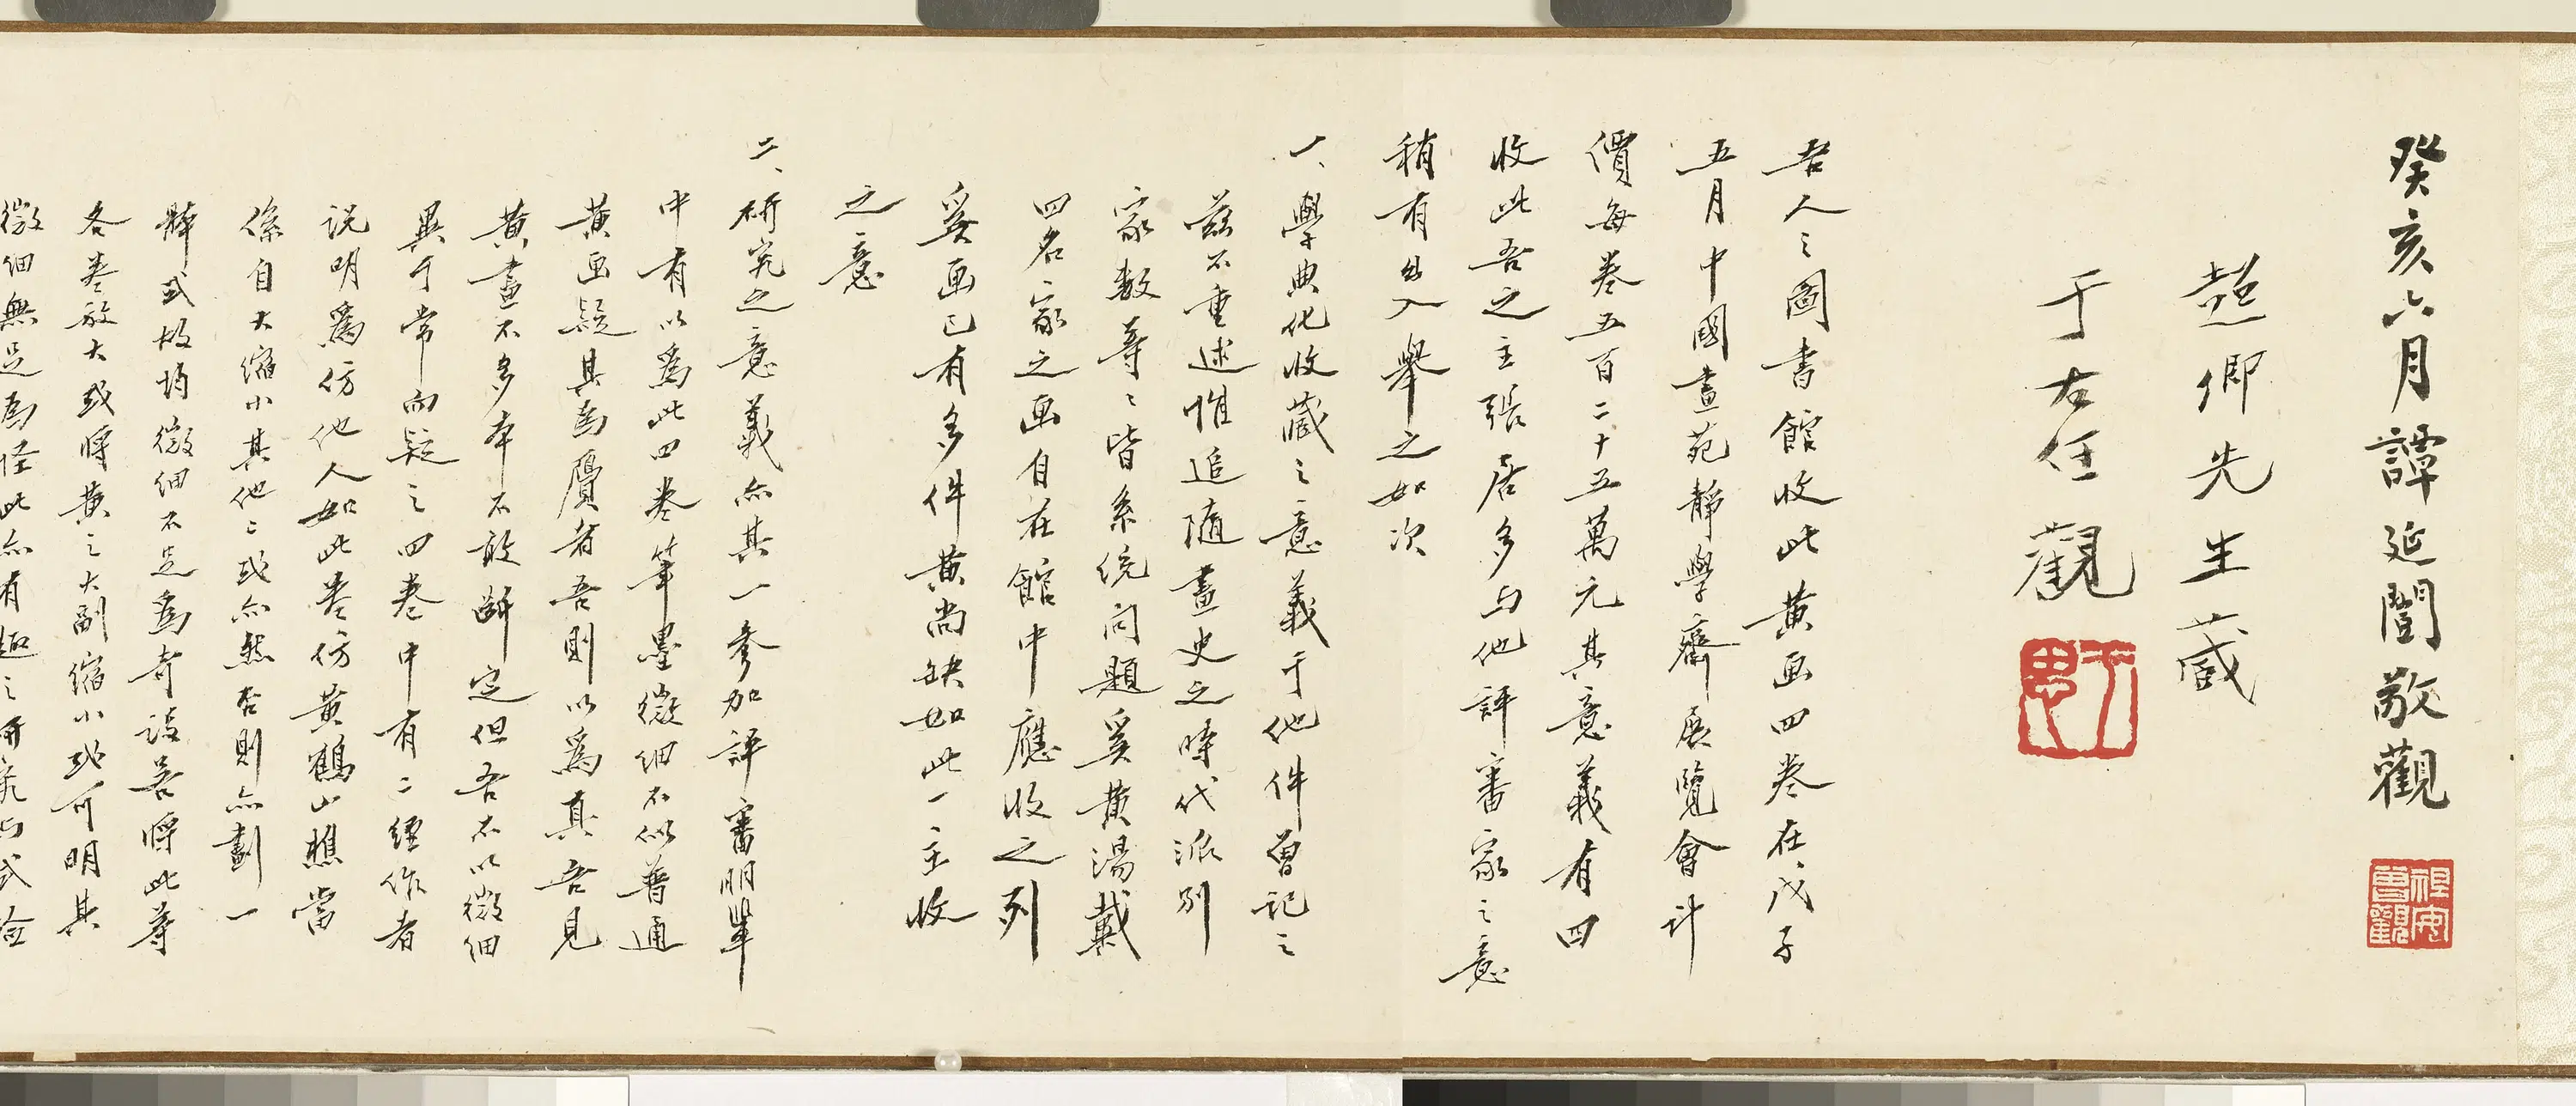 癸亥六月譚延闓敬觀
祖安曾觀
趙卿先生藏
于右任觀
于思
吾人之圖書館收此黃画四卷在戊子
五月中國畫苑靜學齋展覽會計
價每卷五百二十五萬元其意義有四
收此吾之主張居多与他評審家之意
稍有出入舉之如次
一、學典化收藏之意義于他件曾記之
茲不重述惟追隨畫史之時代派別
家數等〻皆系統问題奚黃湯戴
四名家之画自在館中應收之列
奚画已有多件黃尚缺如此一主收
之意
二、研究之意義亦其一參加評審朋輩
中有以爲此四卷筆墨微细不似普通
黃画疑其為贋者吾則以爲真吾見
黃畫不多本不敢斷定但吾不以微细
異于常而疑之四卷中有二經作者
説明爲仿他人如此卷仿黃鶴山樵當
係自大縮小其他〻或亦然否則亦劃一
辦式故均微细不足爲奇該若將此等
各卷放大或將黃之大副縮小或可明其
微细無足為怪此亦有趣之研究与式